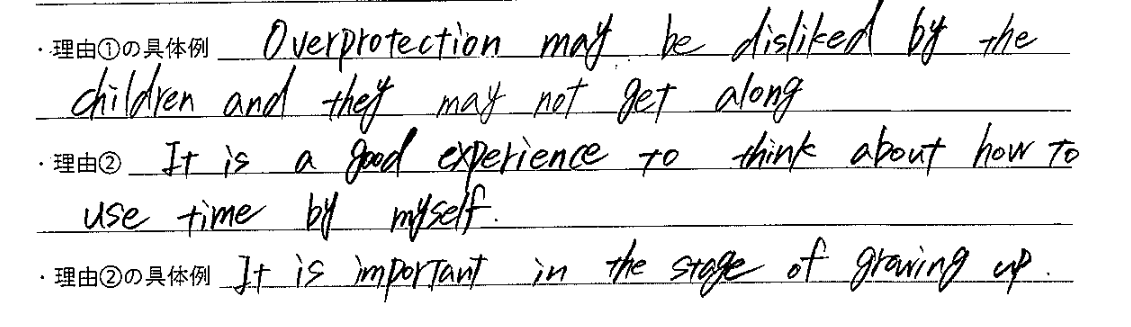 ・理由①の具体例 Overprotection may be disliked by the
children and they may not get along
・理由② It is a good experience to think about how to
use time by myself.
・理由②の具体例 It is important in the stage of growing up.